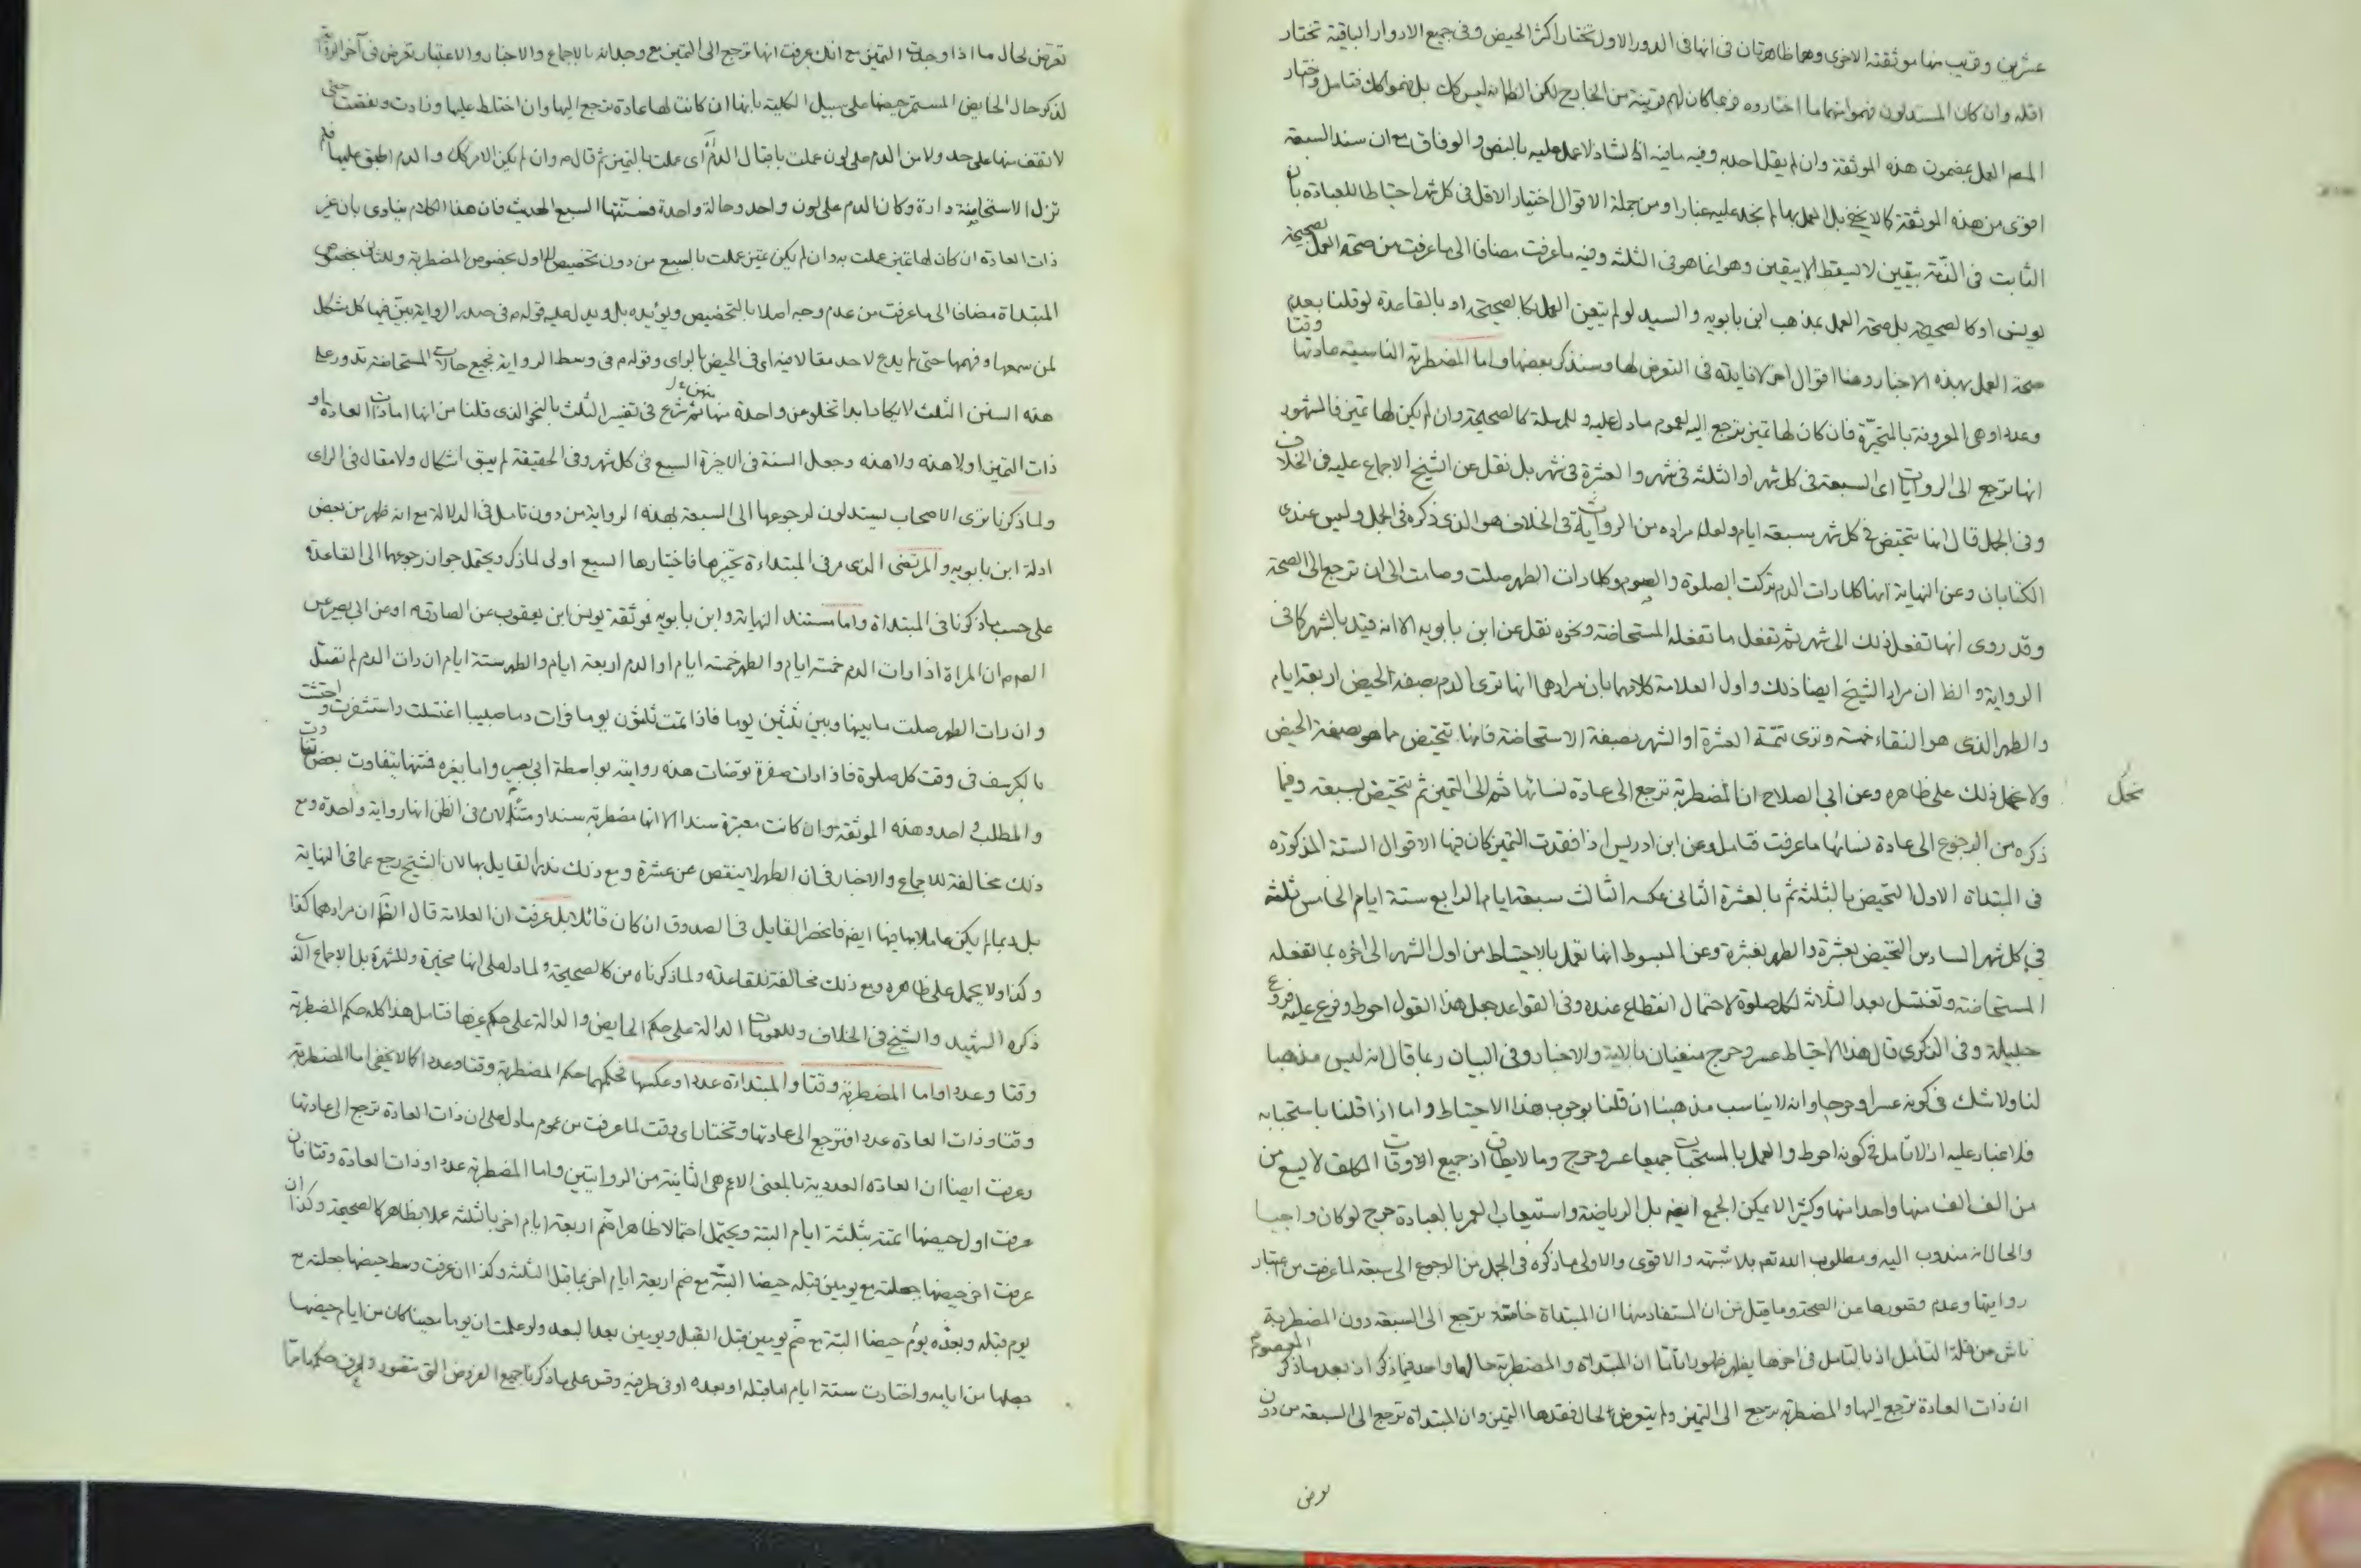 عشرين وقريب منها موثقته الاخرى وهما ظاهرتان فى انها فى الدور الاول تختار اكثر الحيض وفى جميع الادوار الباقية تختار
اقله وان كان المستدلون فهموا منهما ما اختاروه فربما كان لهم قرينة من الخارج لكن الظ انه ليس كك بل فهموا كك فتامل واختار
المص العمل بمضمون هذه الموثقة وان لم يقل احد به وفيه ما فيه اذ الشاذ لا عمل عليه بالنص والوفاق مع ان سند السبعة
اقوى من هذه الموثقة كما لا يخفى بل العمل بها لم نجد عليه غبارا ومن جملة الاقوال اختيار الاقل فى كل شهر احتياطا للعبادة بان
الثابت فى الذمة بيقين لا يسقط الا بيقين وهو انما هو فى الثلثة وفيه ما عرفت مضافا الى ما عرفت من صحة العمل بصحيحة
يونس او كالصحيحة بل صحة العمل بمذهب ابن بابويه والسيد لو لم يتعين العمل بكالصحيحة او بالقاعدة لو قلنا بعدم
صحة العمل بهذه الاخبار وهنا اقوال اخر لا فايدة فى التعرض لها وسنذكر بعضها واما المضطربة الناسية عادتها وقتا
وعددا وهى المعروفة بالمتحيرة فان كان لها تميز ترجع اليه لعموم ما دل عليه وللمرسلة كالصحيحة وان لم يكن لها تميز فالمشهور
انها ترجع الى الروايات اى السبعة فى كل شهر او الثلثة فى شهر والعشرة فى شهر بل نقل عن الشيخ الاجماع عليه فى الخلاف
وفى الجمل قال انها تتحيض فى كل شهر سبعة ايام ولعله مراده من الروايات فى الخلاف هو الذى ذكره فى الجمل وليس عندى
الكتابان وعن النهاية انها كلما رات الدم تركت الصلوة والصوم وكلما رات الطهر صلت وصامت الى ان ترجع الى الصحة
وقد روى انها تفعل ذلك الى شهر ثم تفعل ما تفعله المستحاضة ونحوه نقل عن ابن بابويه الا انه قيد بالشهر كما فى
الرواية والظ ان مراد الشيخ ايضا ذلك واول العلامة كلامهما بان مرادهما انها ترى الدم بصفة الحيض اربعة ايام
والطهر الذى هو النقاء خمسة وترى تتمة العشرة او الشهر بصفة الاستحاضة فانها تتحيض بما هو بصفة الحيض
ولا نحمل ذلك على ظاهره وعن ابى الصلاح ان المضطربة ترجع الى عادة نسائها ثم الى التميز ثم تتحيض بسبعة وفيما
نحمل
ذكره من الرجوع الى عادة نسائها ما عرفت فتامل وعن ابن ادريس اذا فقدت التميز كان فيها الاقوال الستة المذكورة
فى المبتداة الاول التحيض بالثلثة ثم بالعشرة الثانى عكسه الثالث سبعة ايام الرابع ستة ايام الخامس ثلثة
فى كل شهر السادس التحيض بعشرة والطهر بعشرة وعن المبسوط انها تعمل بالاحتياط من اول الشهر الى اخره بما تفعله
المستحاضة وتغتسل بعد الثلاثة لكل صلوة لاحتمال انقطاع عنده وفى القواعد جعل هذا القول احوط وفرع عليه فروع
جليلة وفى الذكرى قال هذا الاحتياط عسر وحرج منفيان بالاية والاخبار وفى البيان ربما قال انه ليس مذهبا
لنا ولا شك فى كونه عسرا وحرجا وانه لا يناسب مذهبنا ان قلنا بوجوب هذا الاحتياط واما اذا قلنا باستحبابه
فلا غبار عليه اذ لا تامل فى كونه احوط والعمل بالمستحبات جميعا عسر وحرج وما لا يطاق اذ جميع الاوقات المكلف لا يسع من
من الف الف منها واحدا منها وكثيرا لا يمكن الجمع ايضا بل الرياضة واستيعاب العمر بالعبادة حرج لو كان واجبا
والحال انه مندوب اليه ومطلوب الله تعم بلا شبهة والاقوى والاولى ما ذكره فى الجمل من الرجوع الى سبعة لما عرفت من اعتبار
روايتها وعدم قصورها عن الصحة وما قيل من ان المستفاد منها ان المبتداة خاصة ترجع الى السبعة دون المضطربة
ناش من قلة التامل اذ بالتامل فى اخرها يظهر ظهورا تاما ان المبتداة والمضطربة حالهما واحد فيما ذكر اذ بعد ما ذكر المعصوم
ان ذات العادة ترجع اليها والمضطربة ترجع الى التميز ولم يتعرض لحال فقدها التميز وان المبتداة ترجع الى السبعة من دون
تعرض
تعرض لحال ما اذا وجدت التميز مع انك عرفت انها ترجع الى التميز مع وجدانه بالاجماع والاخبار والاعتبار تعرض فى آخر الرواية
لذكر حال الحايض المستمر حيضها على سبيل الكلية بانها ان كانت لها عادة ترجع اليها وان اختلط عليها وزادت ونقصت حتى
لا تقف منها على حد ولا من الدم على لون عملت باقبال الدم اى عملت بالتميز ثم قال م وان لم يكن الامر كك والدم اطبق عليها فلم
تزل الاستحاضة دارة وكان الدم على لون واحد وحالة واحدة فسنتها السبع الحديث فان هذا الكلام ينادى بان غير
ذات العادة ان كان لها تميز عملت به وان لم يكن تميز عملت بالسبع من دون تخصيص للاول بخصوص المضطربة وللثانى بخصوص
المبتداة مضافا الى ما عرفت من عدم وجه اصلا بالتخصيص ويؤيده بل ويدل عليه قوله م فى صدر الرواية بين فيها كل مشكل
لمن سمعها وفهمها حتى لم يدع لاحد مقالا فيه اى فى الحيض بالراى وقوله م فى وسط الرواية فجميع حالات المستحاضة تدور على
هذه السنن الثلث لا يكاد ابدا تخلو من واحدة منهن ثم شرع فى تفسير الثلث بالنحو الذى قلنا من انها اما ذات العادة او
ذات التميز او لا هذه ولا هذه وجعل السنة فى الاخيرة السبع فى كل شهر وفى الحقيقة لم يبق اشكال ولا مقال فى الراى
ولما ذكرنا ترى الاصحاب يستدلون لرجوعها الى السبعة بهذه الرواية من دون تامل فى الدلالة مع انه ظهر من بعض
ادلة ابن بابويه والمرتضى الذى مر فى المبتداءة تخيرها فاختيارها السبع اولى لما ذكر ويحتمل جواز رجوعها الى القاعدة
على حسب ما ذكرنا فى المبتداة واما مستند النهاية وابن بابويه فموثقة يونس ابن يعقوب عن الصادق م او عن ابى بصير عن
الصم م ان المراة اذا رات الدم خمسة ايام والطهر خمسة ايام او الدم اربعة ايام والطهر ستة ايام ان رات الدم لم تصل
وان رات الطهر صلت ما بينها وبين ثلثين يوما فاذا تمت ثلثون يوما فرات دما صبيبا اغتسلت واستثفرت واحتشت
بالكرسف فى وقت كل صلوة فاذا رات صفرة توضات هذه روايته بواسطة ابى بصير واما بغيره فمتنها بتفاوت بعض
والمطلب واحد وهذه الموثقة وان كانت معتبرة سندا الا انها مضطربة سندا ومتنا لان فى الظن انها رواية واحدة ومع
ذلك مخالفة للاجماع والاخبار فان الطهر لا ينقص عن عشرة ومع ذلك ندر القايل بها لان الشيخ رجع عما فى النهاية
بل ربما لم يكن عاملا بها فيها ايضا فانحصر القايل فى الصدوق ان كان قائلا بل عرفت ان العلامة قال الظ ان مرادهما كذا
وكذا ولا يحمل على ظاهره ومع ذلك مخالفته للقاعدة ولما ذكرناه من كالصحيحة ولما دل على انها مخيرة وللشهرة بل الاجماع الذى
ذكره الشهيد والشيخ فى الخلاف وللعمومات الدالة على حكم الحايض والدالة على حكم غيرها فتامل هذا كله حكم المضطربة
وقتا وعددا واما المضطربة وقتا والمبتداءة عددا وعكسها فحكمهما حكم المضطربة وقتا وعددا كما لا يخفى اما المضطربة
وقتا وذات العادة عددا فترجع الى عادتها وتختار اى وقت لما عرفت من عموم ما دل على ان ذات العادة ترجع الى عادتها
وعرفت ايضا ان العادة العددية بالمعنى الاعم هى الثابتة من الروايتين واما المضطربة عددا وذات العادة وقتا فان
عرفت اول حيضها اتمته بثلثة ايام البتة ويحتمل احتمالا ظاهرا ضم اربعة ايام اخر باثلثة عملا بظاهر كالصحيحة وكذا ان
عرفت اخر حيضها جعلته مع يومين قبله حيضا البتة مع ضم اربعة ايام اخر بما قبل الثلثة وكذا ان عرفت وسط حيضها جعلته مع
يوم قبله وبعده يوم حيضا البتة مع ضم يومين قبل القبل ويومين بعد البعد ولو علمت ان يوما معينا كان من ايام حيضها
جعلها من ايامه واختارت ستة ايام اما قبله او بعده او فى طرفيه وقس على ما ذكرنا جميع الفروض التى تتصور واعرف حكمها